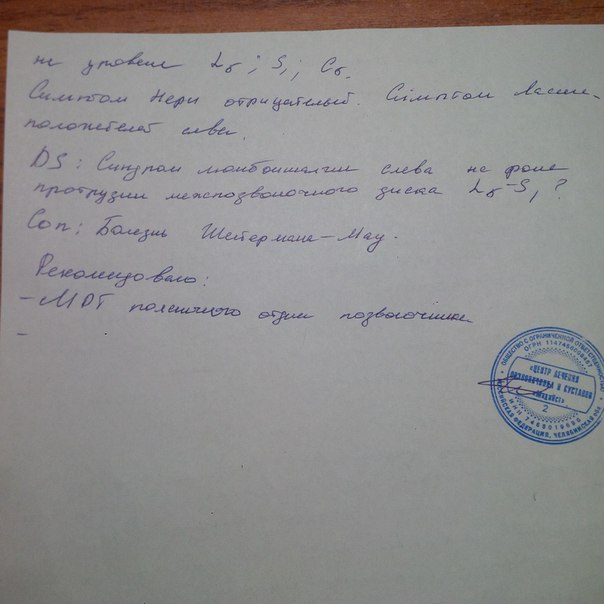 на уровне L5; S1; C6.
Симптом Нери отрицательный. Симптом Ласег-
положителен слева.
DS: Синдром люмбоишалгии слева на фоне
протрузии межпозвоночного диска L5-S1?
Соп: Болезнь Шейермана-Мау.
Рекомендовано:
- МРТ поясничного отдела позвоночника
-
ОБЩЕСТВО С ОГРАНИЧЕННОЙ ОТВЕТСТВЕННОСТЬЮ
ОГРН
«ЦЕНТР ЛЕЧЕНИЯ
ПОЗВОНОЧНИКА И СУСТАВОВ
2
ИНН
РОССИЙСКАЯ ФЕДЕРАЦИЯ, ЧЕЛЯБИНСКАЯ ОБЛ